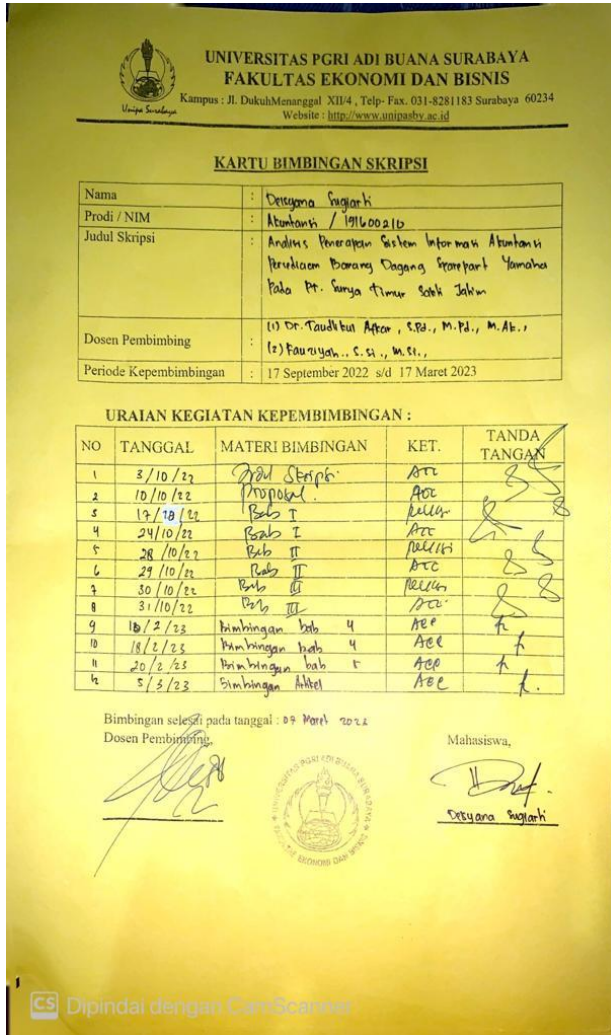 UNIVERSITAS PGRI ADI BUANA SURABAYA
FAKULTAS EKONOMI DAN BISNIS
Unipa Surabaya
Kampus : Jl. DukuhMenanggal XII/4 , Telp- Fax. 031-8281183 Surabaya 60234
Website : http://www.unipasby.ac.id
KARTU BIMBINGAN SKRIPSI
Nama : Desyana Sugiarti
Prodi / NIM : Akuntansi / 191600210
Judul Skripsi : Analisis Penerapan Sistem Informasi Akuntansi
Persediaan Barang Dagang Sparepart Yamaha
Pada Pt. Surya Timur Sakti Jatim
Dosen Pembimbing : (1) Dr. Taudlikhul Afkar, S.Pd., M.Pd., M.Ak.,
(2) Fauziyah., S.Si., M.Si.,
Periode Kepembimbingan : 17 September 2022 s/d 17 Maret 2023
URAIAN KEGIATAN KEPEMBIMBINGAN :
NO TANGGAL MATERI BIMBINGAN KET. TANDA TANGAN
1 3/10/22 Judul Skripsi Acc
2 10/10/22 Proposal. Acc
3 17/10/22 Bab I Revisi
4 24/10/22 Bab I Acc
5 28/10/22 Bab II Revisi
6 29/10/22 Bab II Acc
7 30/10/22 Bab III Revisi
8 31/10/22 Bab III Acc
9 /2/23 Bimbingan bab 4 Acc
10 18/2/23 Bimbingan bab 4 Acc
11 20/2/23 Bimbingan bab 5 Acc
12 5/3/23 Bimbingan Artikel Acc
Bimbingan selesai pada tanggal : Maret
Dosen Pembimbing, Mahasiswa,
UNIVERSITAS PGRI ADI BUANA SURABAYA
EKONOMI DAN BISNIS
Desyana Sugiarti
CS Dipindai dengan CamScanner